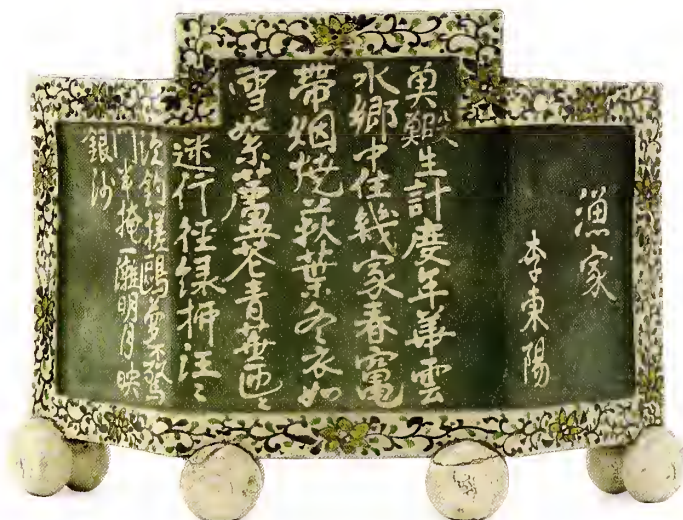 漁家
李東陽
魚鰕生計度年華雲
水鄉中住幾家春竈
帶烟燒荻葉冬衣如
雪絮蘆花青蕪匝〻
迷行徑綠柳汪〻
釣槎鷗鳥不驚
門半掩一灘明月映
銀沙